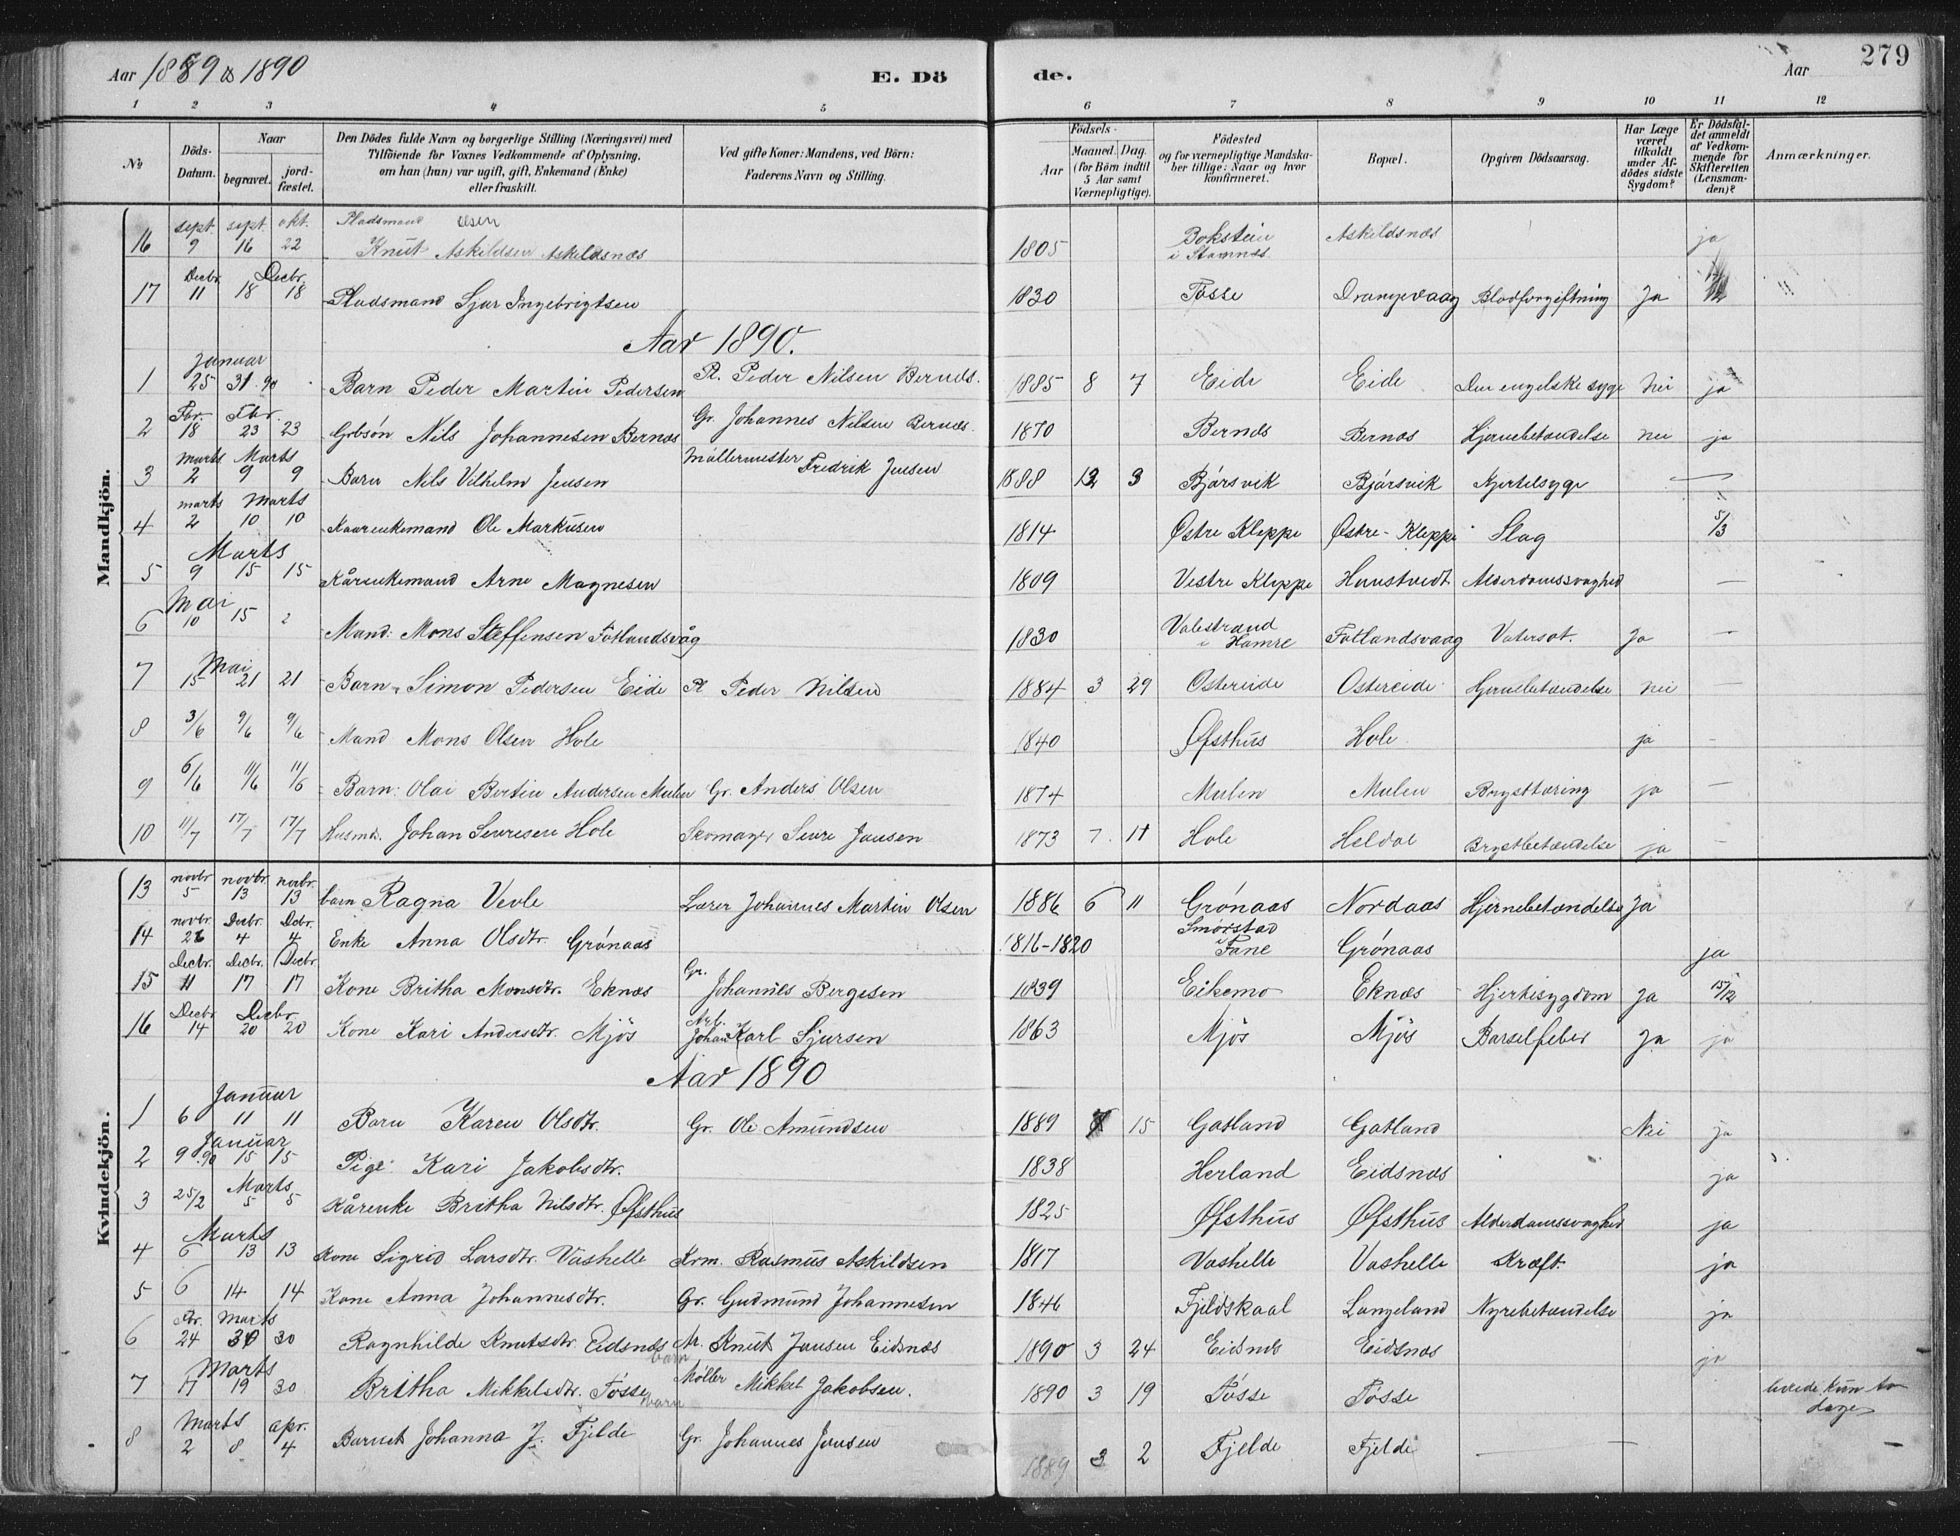 Aar 1889 & 1890 E. Dö de. Aar 279
1 2 3 4 5 6 7 8 9 10 11 12
No
Döds-Datum.
Naar begravet. jord-fæstet.
Den Dödes fulde Navn og borgerlige Stilling (Næringsvei) med Tilföiende for Voxnes Vedkommende af Oplysning, om han (hun) var ugift, gift, Enkemand (Enke) eller fraskilt.
Ved gifte Koner: Mandens, ved Börn: Faderens Navn og Stilling.
Födsels- Aar Maaned. Dag. (for Börn indtil 5 Aar samt Værnepligtige).
Födested og for værnepligtige Mandska-ber tillige: Naar og hvor konfirmeret.
Bopæl.
Opgiven Dödsaarsag.
Har Læge været tilkaldt under Af-dödes sidste Sygdom?
Er Dödsfal-det anmeldt af Vedkom-mende for Skifteretten (Lensman-den)?
Anmærkninger.
Mandkjön.
16 sept. 9 sept. 16 okt. 22 Pladsmand Knut Olsen Askildsen Askeldsnæs 1805 Bokstein i Stamnes Askeldsnæs ja
17 Decbr. 11 18 Decbr. 18 Pladsmand Sjur Ingebrigtsen 1830 Tøsse Drangevaag Blodforgiftning Ja
Aar 1890.
1 Januar 25 31 90 Barn Peder Martin Pedersen Pl. Peder Nilsen Bernæs. 1885 8 7 Eide Eide Den engelske syge Nei ja
2 Fbr. 18 Fbr. 23 23 Grbsøn Nils Johannesen Bernæs Gr. Johannes Nilsen Bernæs. 1870 Bernæs Bernæs Hjernebetændelse nei ja
3 Marts 2 Marts 9 9 Barn Nils Vilhelm Jensen Møllermester Fredrik Jensen 1888 12 3 Bjørsvik Bjørsvik Kjertelsyge —
4 marts 2 Marts 10 10 Kaarenkemand Ole Markusen 1814 Østre Kleppe Østre-Kleppe Slag 5/3
5 Marts 9 15 15 Kårenkemand Arne Magnesen 1809 Vestre Kleppe Hanstvedt Alderdomssvaghed —
6 Mai 10 15 2 Mand: Mons Steffensen Fotlandsvåg 1830 Valestrand i Hamre Fotlandsvaag Vatersot. Ja —
7 Mai 15 21 21 Barn Simon Pedersen Eide Pl. Peder Nilsen 1884 3 29 Ostereide Ostereide Hjernebetændelse nei —
8 3/6 9/6 9/6 Mand Mons Olsen Hole 1840 Øfsthus Hole ja —
9 6/6 11/6 11/6 Barn: Olai Bertin Andersen Mulen Gr. Anders Olsen 1874 Mulen Mulen Brysttæring ja —
10 11/7 17/7 17/7 Husmd. Johan Seversen Hole Skomager Sevre Jansen 1873 7. 11 Hole Heldal Brystbetændelse ja —
Kvindekjön.
13 novbr. 5 novbr. 13 novbr. 13 barn Ragna Vevle Lærer Johannes Martin Olsen 1886 6 11 Grønaas Nordaas Hjernebetændelse Ja
14 novbr. 26 Decbr. 4 Dcbr. 4 Enke Anna Olsdtr. Grønaas 1816-1820 Smørstad i Fane Grønaas ja
15 Decbr. 11 Decbr. 17 Decbr. 17 Kone Britha Monsdtr. Eknæs Gr. Johannes Bergesen 1839 Eikemo Eknæs Hjertesygdom Ja 15/12
16 Decbr. 14 Decbr. 20 20 Kone Kari Andersdtr. Mjøs Arb. Johan Karl Sjursen 1863 Mjøs Mjøs Barselfeber Ja ja
Aar 1890
1 Januar 6 11 11 Barn Karen Olsdtr. Gr. Ole Amundsen 1889 15 Gatland Gatland Nei ja
2 Januar 9 90 15 15 Pige: Kari Jakobsdtr. 1838 Herland Eidsnæs ja
3 25/2 Marts 5 5 Kårenke Britha Nilsdtr. Øfsthus 1825 Øfsthus Øfsthus Alderdomssvaghed ja
4 Marts 6 13 13 Kone Sigrid Larsdtr. Vashelle Krm. Rasmus Askildsen 1817 Vashelle Vashelle Kræft. ja
5 6 14 14 Kone Anna Johannesdtr. Gr. Gudmund Johannesen 1846 Fjeldskaal Langeland Nyrebetændelse ja
6 Fbr. 24 Marts 30 30 Ragnhilde Knutsdtr. Eidsnæs barn Ar. Knut Jansen Eidsnæs 1890 3 24 Eidsnæs Eidsnæs ja
7 Marts 17 19 30 Britha Mikkelsdtr. Tøsse barn Møller Mikkel Jakobsen. 1890 3 19 Tøsse Tøsse levede kun to dage
8 Marts 2 8 apr. 4 Barnet Johanna J. Fjelde Gr. Johannes Jansen 1889 3 2 Fjelde Fjelde — —